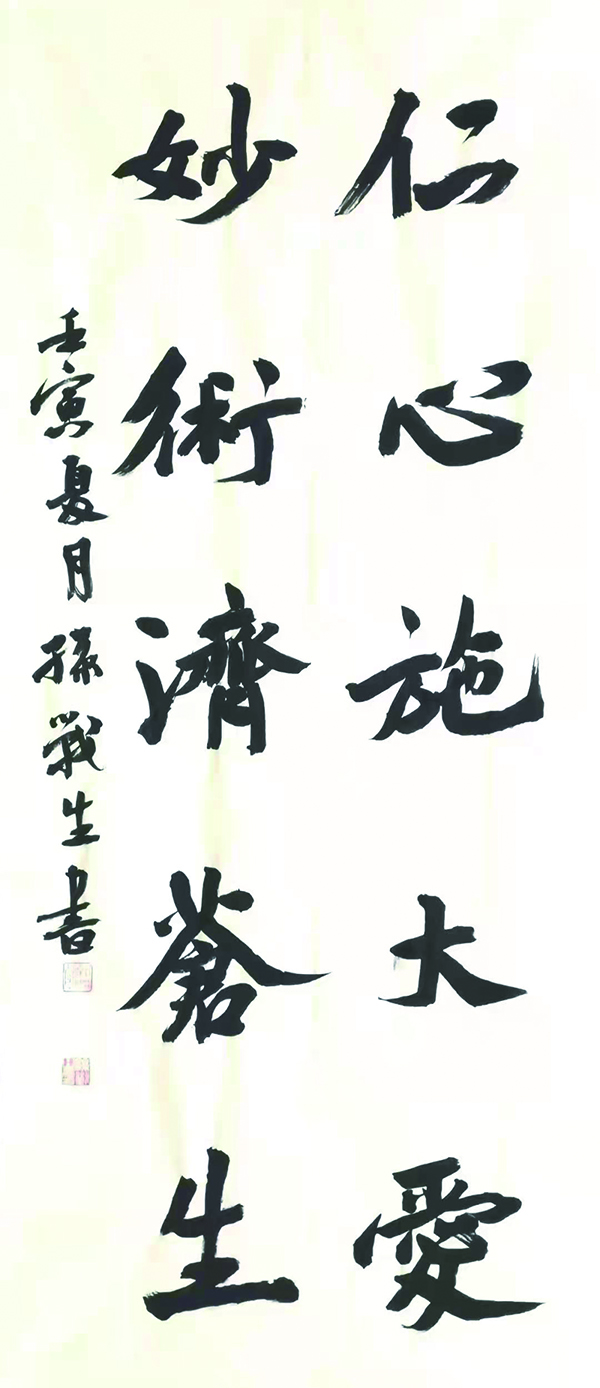 仁心施大愛
妙術濟蒼生
壬寅夏月孫戰生書